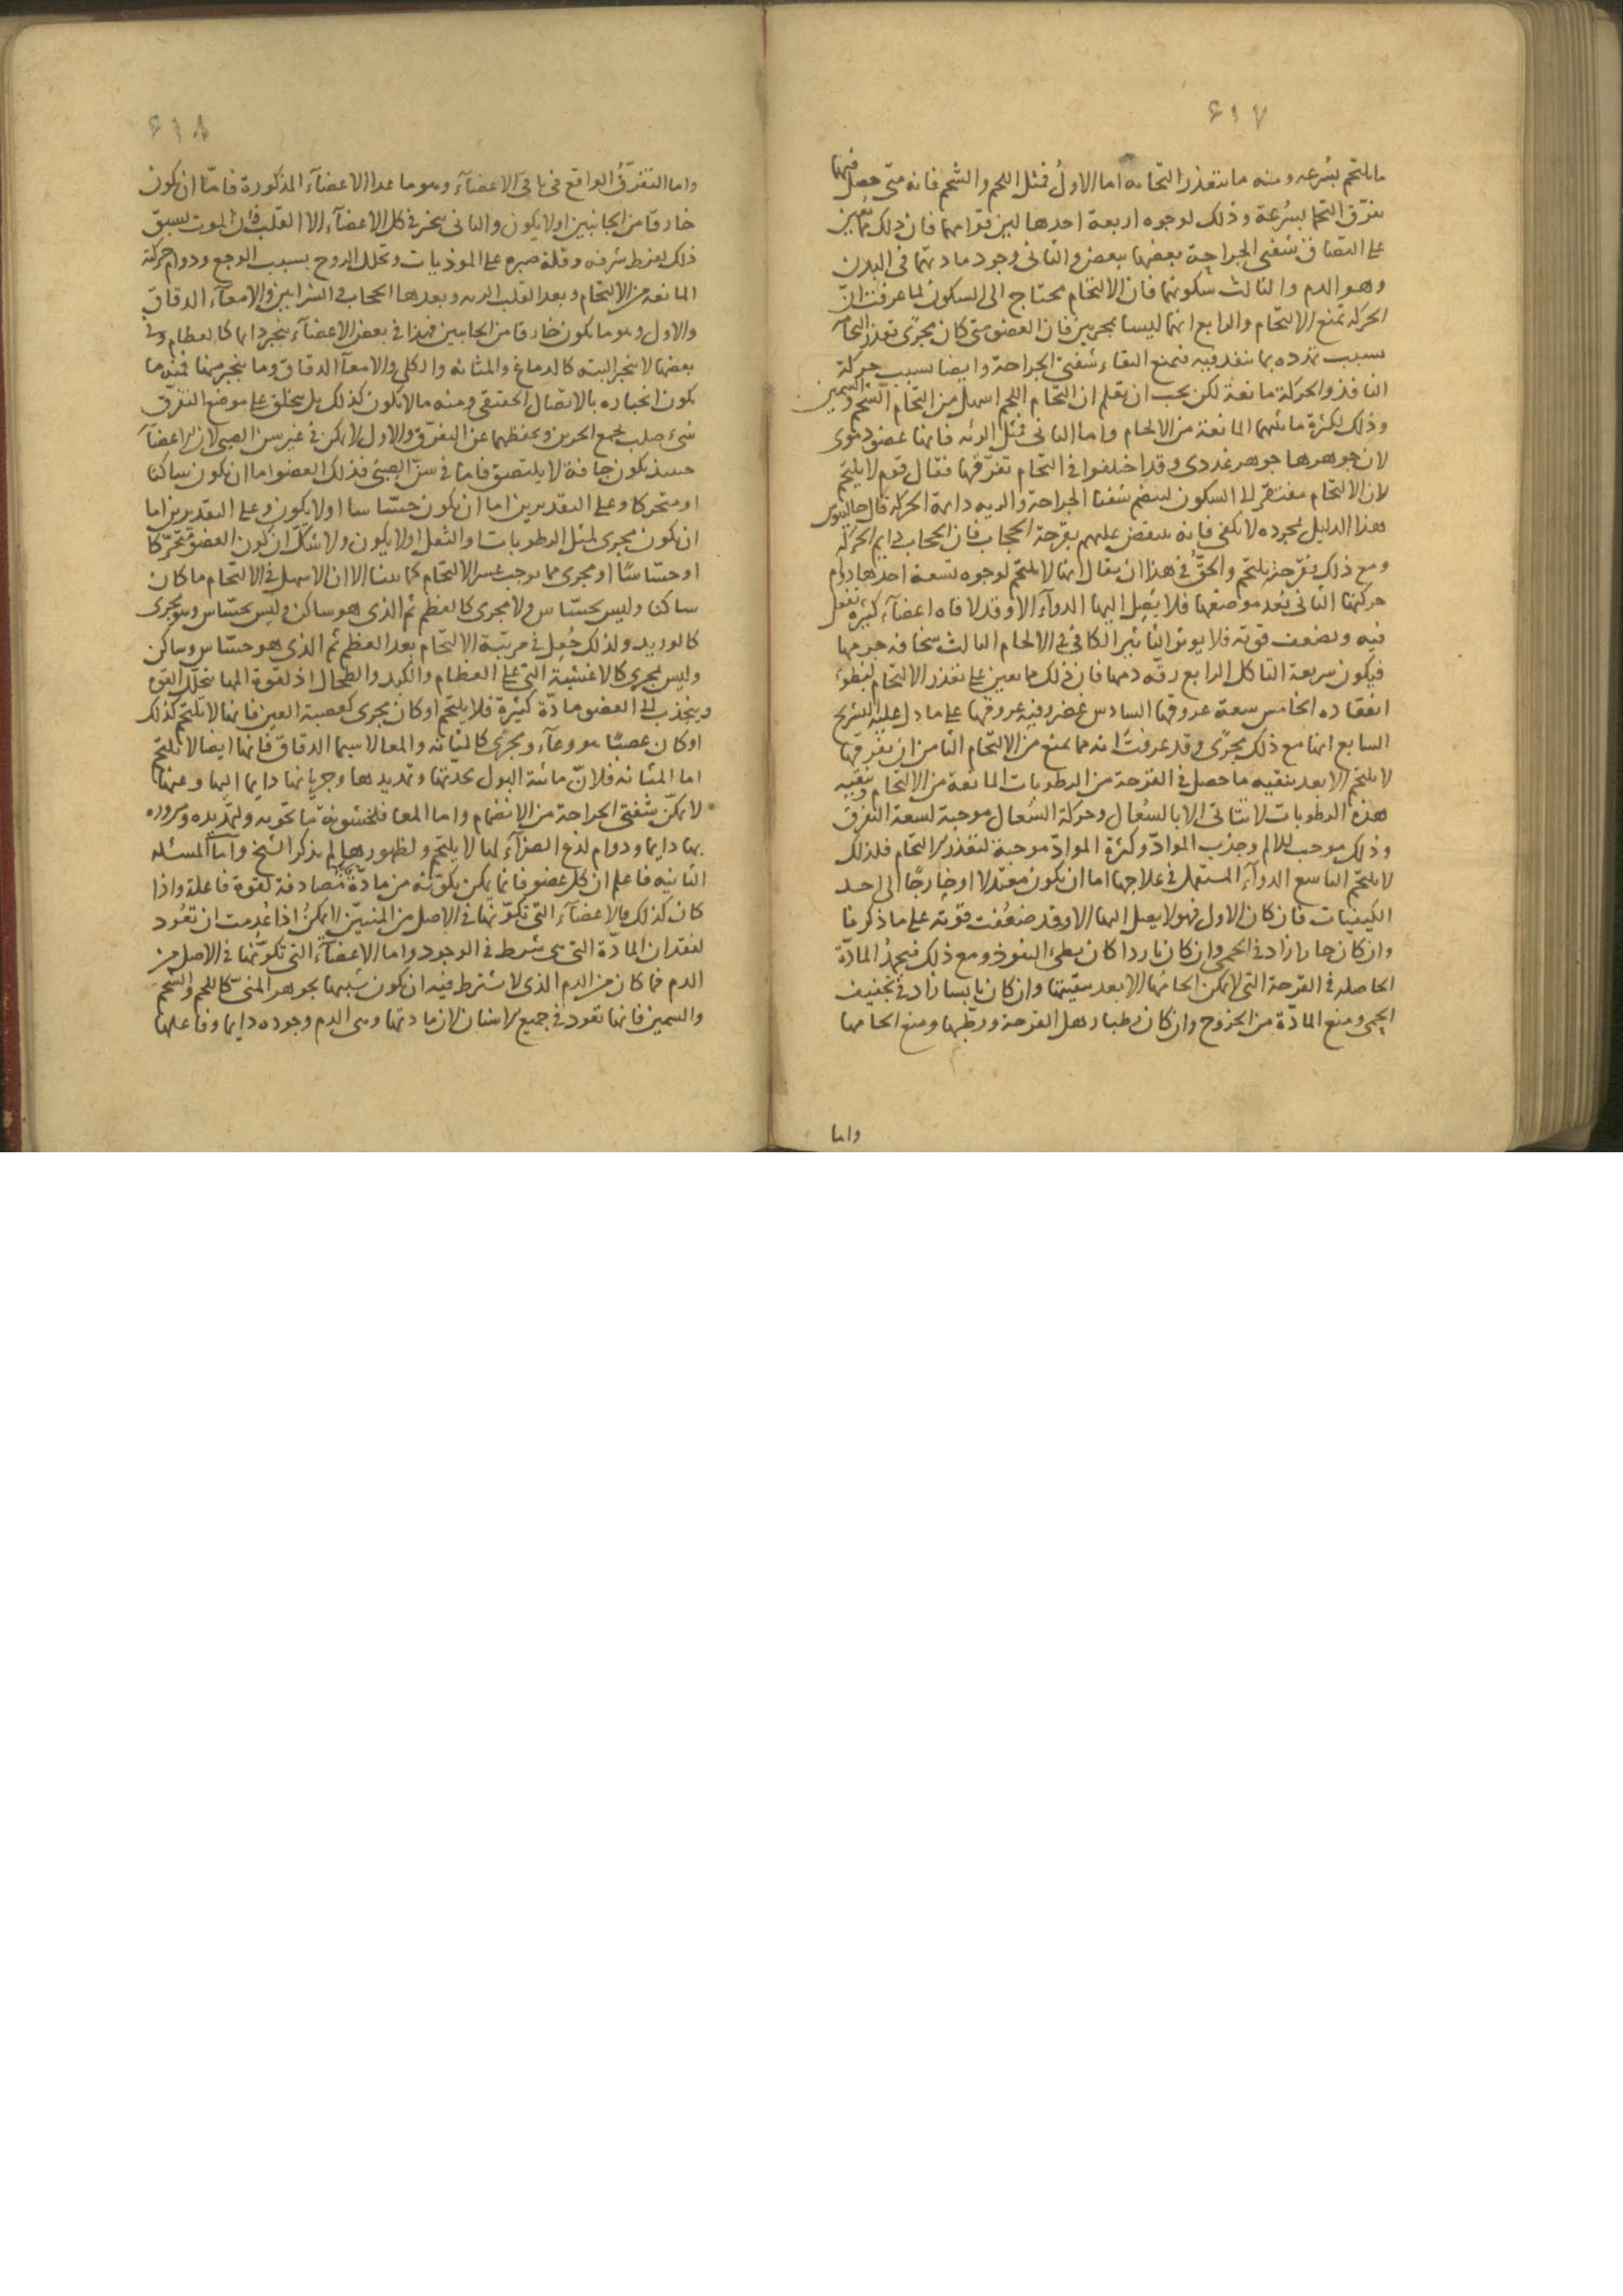 ٤١٧
ما يلتحم بسرعه ومنه ما يتعذر التحامه اما الاول فمثل اللحم والشحم فانه متى حصل فيهما
تفرق التحما بسرعة وذلك لوجوه اربعة احدها لين قوامهما فان ذلك مما يعين
على التصاق شفتى الجراحة بعضها ببعض والثانى وجود مادتهما فى البدن
وهو الدم والثالث سكونهما فان الالتحام محتاج الى السكون لما عرفت ان
الحركة تمنع الالتحام والرابع انهما ليسا بمجريين فان العضو متى كان مجرى تعذر التحامه
بسبب تمدده بما ينفذ فيه فيمنع التقاء شفتى الجراحة وايضا بسبب حركة
النافذ والحركة مانعة لكن يجب ان يعلم ان التحام اللحم اسهل من التحام الشحم والسمين
وذلك لكثرة مائيتهما المانعة من الالحام واما الثانى فمثل الرئه فانها عضو دموى
لان جوهرها جوهر غددى وقد اختلفوا فى التحام تفرقها فقال قوم لا يلتحم
لان الالتحام مفتقر الى السكون لينضم شفتا الجراحة والريه دايمة الحركة قال جالينوس
هذا الدليل بمجرده لا يكفى فانه ينتقض عليهم بقرحة الحجاب فان الحجاب دايم الحركة
ومع ذلك فقرحته يلتحم والحق فى هذا ان يقال انها لا يلتحم لوجوه تسعة احدها دوام
حركتها الثانى بُعد موضعها فلا يصل اليها الدوآء الا وقد لاقاه اعضآء كثيرة تفعل
فيه وتضعف قوته فلا يؤثر التأثير الكافى فى الالحام الثالث سخافه جرمها
فيكون سريعة التاكل الرابع رقة دمها فان ذلك مما يعين على تعذر الالتحام لبطوء
انعقاده الخامس سعة عروقها السادس غضروفية عروقها على ما دل عليه التشريح
السابع انها مع ذلك مجرى وقد عرفت انه مما يمنع من الالتحام الثامن ان تفرقها
لا يلتحم الا بعد تنقيه ما حصل فى القرحة من الرطوبات المانعة من الالتحام وتنقيه
هذه الرطوبات لا يتاتى الا بالسعال وحركة السعال موجبة لسعة التفرق
وذلك موجب للالم وجذب المواد وكثرة المواد موجبة لتعذر الالتحام فلذلك
لا يلتحم التاسع الدوآء المستعمل فى علاجها اما ان يكون معتدلا او خارجا الى احد
الكيفيات فان كان الاول فهو لا يصل اليها الا وقد ضعفت قوته على ما ذكرنا
وان كان حارا زاد فى الحمى وان كان باردا كان بطى النفوذ ومع ذلك فيجمد المادة
الحاصله فى القرحة التى لا يمكن الحامها الا بعد تنقيتها وان كان يابسا زاد فى تجفيف
الحمى ومنع المادة من الخروج وان كان رطبا رهل القرحة ورطبها ومنع الحامها
واما
٤١٨
واما التفرق الواقع فى باقى الاعضآء وهو ما عدا الاعضآء المذكورة فاما ان يكون
خارقا من الجانبين او لا يكون والثانى يجبر فى كل الاعضآء الا القلب فان الموت يسبق
ذلك لفرط شرفه وقلة صبره على الموذيات وتحلل الروح بسبب الوجع ودوام حركته
المانعه من الالتحام وبعد القلب الريه وبعدها الحجاب ثم الشرايين ثم الامعآء الدقاق
والاول وهو ما يكون خارقا من الجانبين فهذا فى بعض الاعضآء ينجبر دايما كالعظام وفى
بعضها لا ينجبر البته كالدماغ والمثانه والكلى والامعآ الدقاق وما ينجبر منها فمنه ما
يكون انجباره بالاتصال الحقيقى ومنه ما لا يكون كذلك بل يخلق على موضع التفرق
شىء صلب يجمع الجزين ويحفظهما عن التفرق والاول لا يمكن فى غير سن الصبى لان الاعضآء
حينئذ يكون جافة لا يلتصق فاما فى سن الصبى فذلك العضو اما ان يكون ساكنا
او متحركا وعلى التقديرين اما ان يكون حساسا او لا يكون وعلى التقديرين اما
ان يكون مجرى لمثل الرطوبات والثفل او لا يكون ولا شك ان كون العضو متحركا
او حساسًا او مجرى مما يوجب عسر الالتحام كما بينا الا ان الاسهل فى الالتحام ما كان
ساكنا وليس بحساس ولا مجرى كالعظم ثم الذى هو ساكن وليس بحساس وهو مجرى
كالوريد ولذلك جُعل فى مرتبة الالتحام بعد العظم ثم الذى هو حساس وساكن
وليس بمجرى كالاغشية التى على العظام والكبد والطحال اذ لقوة المها يتحلل القوه
وينجذب الى العضو مادة كثيرة فلا يلتحم او كان مجرى كعصبة العين فانها لا يلتحم كذلك
او كان عصبيا ووعآء ومجرى كالمثانه والمعا لا سيما الدقاق فانها ايضا لا تلتحم
اما المثانه فلان مائية البول بحدتها وتمديدها وجريانها دايما اليها وعنها
لا تمكن شفتى الجراحة من الانضمام واما المعا فلخشونة ما تحويه وتمديده ومروره
بها دايما ودوام لذع الصفرآء لها لا يلتحم ولظهورها لم يذكر الشيخ واما المسئله
الثانيه فاعلم ان كل عضو فانما يمكن تكونه من مادة مصادفة لقوة فاعلة واذا
كان كذلك فالاعضآء التى تكونها فى الاصل من المنيين لا يمكن اذا عُدمت ان تعُود
لفقدان المادة التى هى شرط فى الوجود واما الاعضآء التى تكونها فى الاصل من
الدم فما كان من الدم الذى لا يشترط فيه ان يكون شبيها بجوهر المنى كاللحم والشحم
والسمين فانها تعود فى جميع الاسنان لان مادتها وهى الدم وجوده دايما وفاعلها